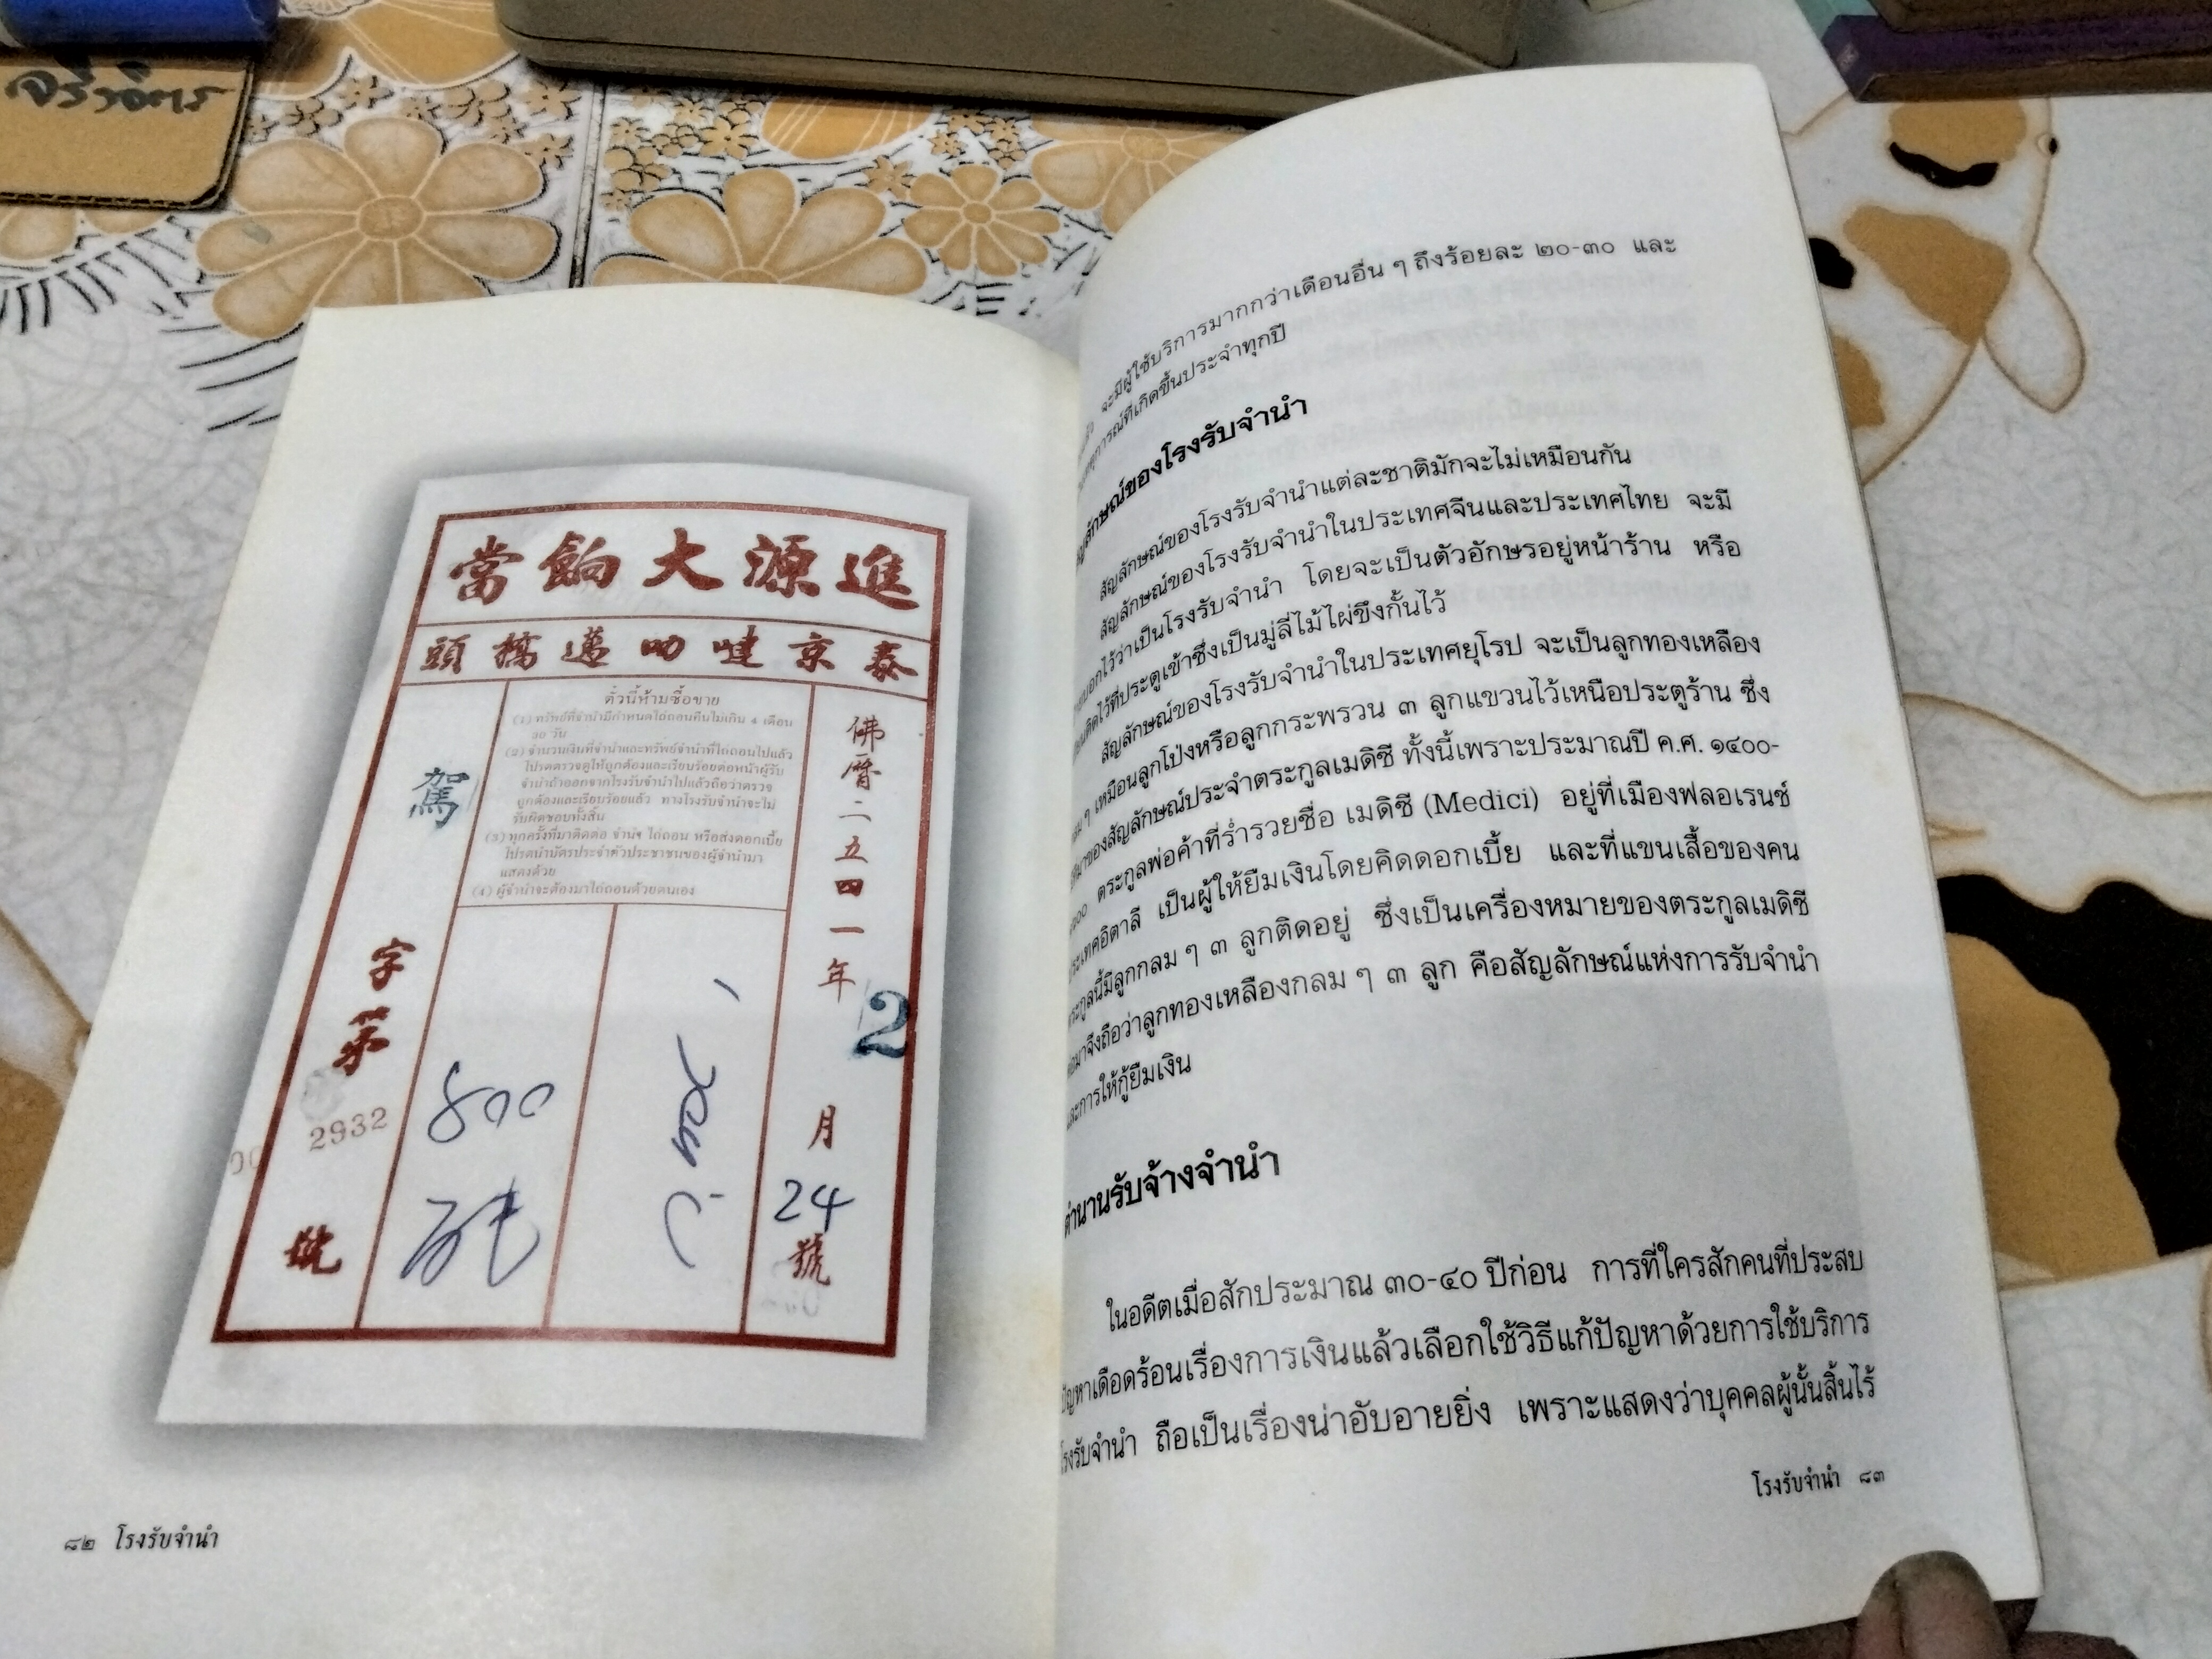 當餉大源進
頭橋邁叻噠京泰
ตั๋วนี้ห้ามซื้อขาย
(1) ทรัพย์ที่จำนำมีกำหนดไถ่ถอนคืนไม่เกิน 4 เดือน
30 วัน
(2) จำนวนเงินที่จำนำและทรัพย์จำนำที่ไถ่ถอนไปแล้ว
โปรดตรวจดูให้ถูกต้องและเรียบร้อยต่อหน้าผู้รับ
จำนำถ้าออกจากโรงรับจำนำไปแล้วถือว่าตรวจ
ถูกต้องและเรียบร้อยแล้ว ทางโรงรับจำนำจะไม่
รับผิดชอบทั้งสิ้น
(3) ทุกครั้งที่มาติดต่อ จำนำ ไถ่ถอน หรือส่งดอกเบี้ย
โปรดนำบัตรประจำตัวประชาชนของผู้จำนำมา
แสดงด้วย
(4) ผู้จำนำจะต้องมาไถ่ถอนด้วยตนเอง
佛曆二五四一年
2
月
24
號
駕
字第
2932
號
800
๘๒ โรงรับจำนำ
จะมีผู้ใช้บริการมากกว่าเดือนอื่น ๆ ถึงร้อยละ ๒๐-๓๐ และ
ที่เกิดขึ้นประจำทุกปี
ของโรงรับจำนำ
สัญลักษณ์ของโรงรับจำนำแต่ละชาติมักจะไม่เหมือนกัน
สัญลักษณ์ของโรงรับจำนำในประเทศจีนและประเทศไทย จะมี
บอกไว้ว่าเป็นโรงรับจำนำ โดยจะเป็นตัวอักษรอยู่หน้าร้าน หรือ
ติดไว้ที่ประตูเข้าซึ่งเป็นมู่ลี่ไม้ไผ่ขึงกั้นไว้
สัญลักษณ์ของโรงรับจำนำในประเทศยุโรป จะเป็นลูกทองเหลือง
ๆ เหมือนลูกโป่งหรือลูกกระพรวน ๓ ลูกแขวนไว้เหนือประตูร้าน ซึ่ง
มาของสัญลักษณ์ประจำตระกูลเมดิซี ทั้งนี้เพราะประมาณปี ค.ศ. ๑๔๐๐-
ตระกูลพ่อค้าที่ร่ำรวยชื่อ เมดิซี (Medici) อยู่ที่เมืองฟลอเรนซ์
ประเทศอิตาลี เป็นผู้ให้ยืมเงินโดยคิดดอกเบี้ย และที่แขนเสื้อของคน
ตระกูลนี้มีลูกกลม ๆ ๓ ลูกติดอยู่ ซึ่งเป็นเครื่องหมายของตระกูลเมดิซี
ต่อมาจึงถือว่าลูกทองเหลืองกลม ๆ ๓ ลูก คือสัญลักษณ์แห่งการรับจำนำ
และการให้กู้ยืมเงิน
ตำนานรับจ้างจำนำ
ในอดีตเมื่อสักประมาณ ๓๐-๔๐ ปีก่อน การที่ใครสักคนที่ประสบ
ปัญหาเดือดร้อนเรื่องการเงินแล้วเลือกใช้วิธีแก้ปัญหาด้วยการใช้บริการ
โรงรับจำนำ ถือเป็นเรื่องน่าอับอายยิ่ง เพราะแสดงว่าบุคคลผู้นั้นสิ้นไร้
โรงรับจำนำ ๘๓